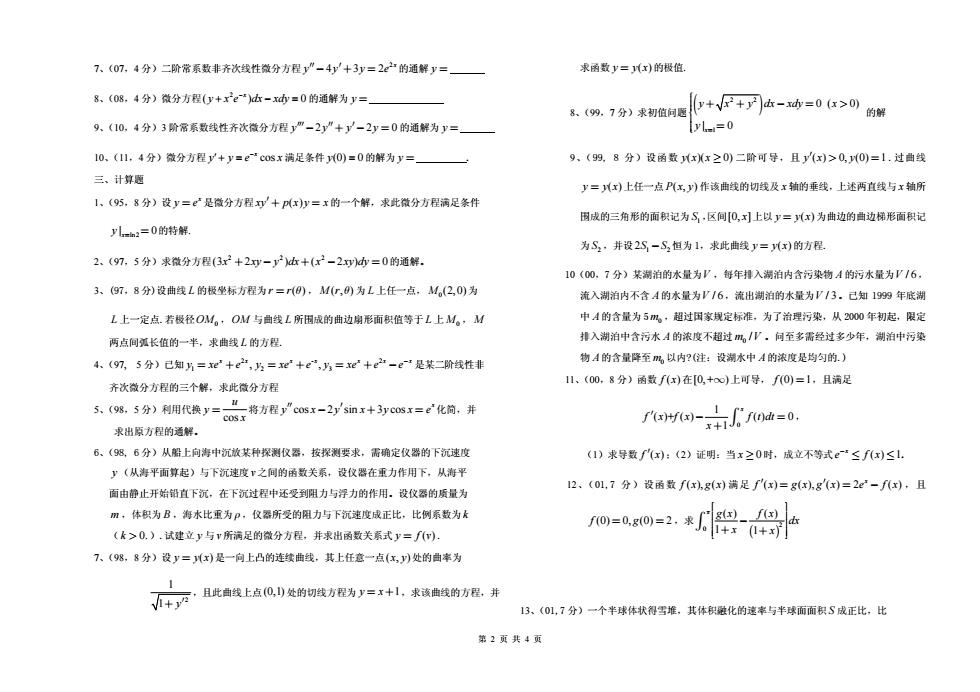 7、(07，4 分）二阶常系数非齐次线性微分方程 y″−4y′+3y=2e²ˣ 的通解 y=______
8、(08，4 分）微分方程(y+x²e⁻ˣ)dx−xdy=0 的通解为 y=______________
9、(10，4 分）3 阶常系数线性齐次微分方程 y‴−2y″+y′−2y=0 的通解为 y=______
10、(11，4 分）微分方程 y′+y=e⁻ˣcos x 满足条件 y(0)=0 的解为 y=________.
三、计算题
1、（95，8 分）设 y=eˣ 是微分方程 xy′+p(x)y=x 的一个解，求此微分方程满足条件
y|ₓ₌ₗₙ₂=0 的特解.
2、（97，5 分）求微分方程(3x²+2xy−y²)dx+(x²−2xy)dy=0 的通解。
3、(97，8 分)设曲线 L 的极坐标方程为 r=r(θ)，M(r,θ) 为 L 上任一点，M₀(2,0) 为
L 上一定点.若极径 OM₀，OM 与曲线 L 所围成的曲边扇形面积值等于 L 上 M₀，M
两点间弧长值的一半，求曲线 L 的方程.
4、（97, 5 分）已知 y₁=xeˣ+e²ˣ, y₂=xeˣ+e⁻ˣ, y₃=xeˣ+e²ˣ−e⁻ˣ 是某二阶线性非
齐次微分方程的三个解，求此微分方程
5、（98，5 分）利用代换 y=u/cos x 将方程 y″cos x−2y′sin x+3ycos x=eˣ 化简，并
求出原方程的通解。
6、（98, 6 分）从船上向海中沉放某种探测仪器，按探测要求，需确定仪器的下沉速度
y（从海平面算起）与下沉速度 v 之间的函数关系，设仪器在重力作用下，从海平
面由静止开始铅直下沉，在下沉过程中还受到阻力与浮力的作用。设仪器的质量为
m，体积为 B，海水比重为 ρ，仪器所受的阻力与下沉速度成正比，比例系数为 k
（k>0.）.试建立 y 与 v 所满足的微分方程，并求出函数关系式 y=f(v).
7、（98，8 分）设 y=y(x) 是一向上凸的连续曲线，其上任意一点(x,y) 处的曲率为
1/√(1+y′²)，且此曲线上点(0,1) 处的切线方程为 y=x+1，求该曲线的方程，并
求函数 y=y(x) 的极值.
8、（99，7 分）求初值问题 {(y+√(x²+y²))dx−xdy=0 (x>0) 的解
y|ₓ₌₁=0
9、（99, 8 分）设函数 y(x)(x≥0) 二阶可导，且 y′(x)>0, y(0)=1.过曲线
y=y(x) 上任一点 P(x,y) 作该曲线的切线及 x 轴的垂线，上述两直线与 x 轴所
围成的三角形的面积记为 S₁,区间[0,x] 上以 y=y(x) 为曲边的曲边梯形面积记
为 S₂，并设 2S₁−S₂ 恒为 1，求此曲线 y=y(x) 的方程.
10（00，7 分）某湖泊的水量为 V，每年排入湖泊内含污染物 A 的污水量为 V/6，
流入湖泊内不含 A 的水量为 V/6，流出湖泊的水量为 V/3。已知 1999 年底湖
中 A 的含量为 5m₀，超过国家规定标准，为了治理污染，从 2000 年初起，限定
排入湖泊中含污水 A 的浓度不超过 m₀/V。问至多需经过多少年，湖泊中污染
物 A 的含量降至 m₀ 以内?(注：设湖水中 A 的浓度是均匀的.)
11、（00，8 分）函数 f(x) 在[0,+∞) 上可导，f(0)=1，且满足
f′(x)+f(x)−1/(x+1)∫₀ˣ f(t)dt=0，
（1）求导数 f′(x)；（2）证明：当 x≥0 时，成立不等式 e⁻ˣ≤f(x)≤1.
12、（01,7 分）设函数 f(x),g(x) 满足 f′(x)=g(x),g′(x)=2eˣ−f(x)，且
f(0)=0,g(0)=2，求 ∫₀^π [g(x)/(1+x)−f(x)/(1+x)²]dx
13、（01,7 分）一个半球体状得雪堆，其体积融化的速率与半球面面积 S 成正比，比
第 2 页 共 4 页